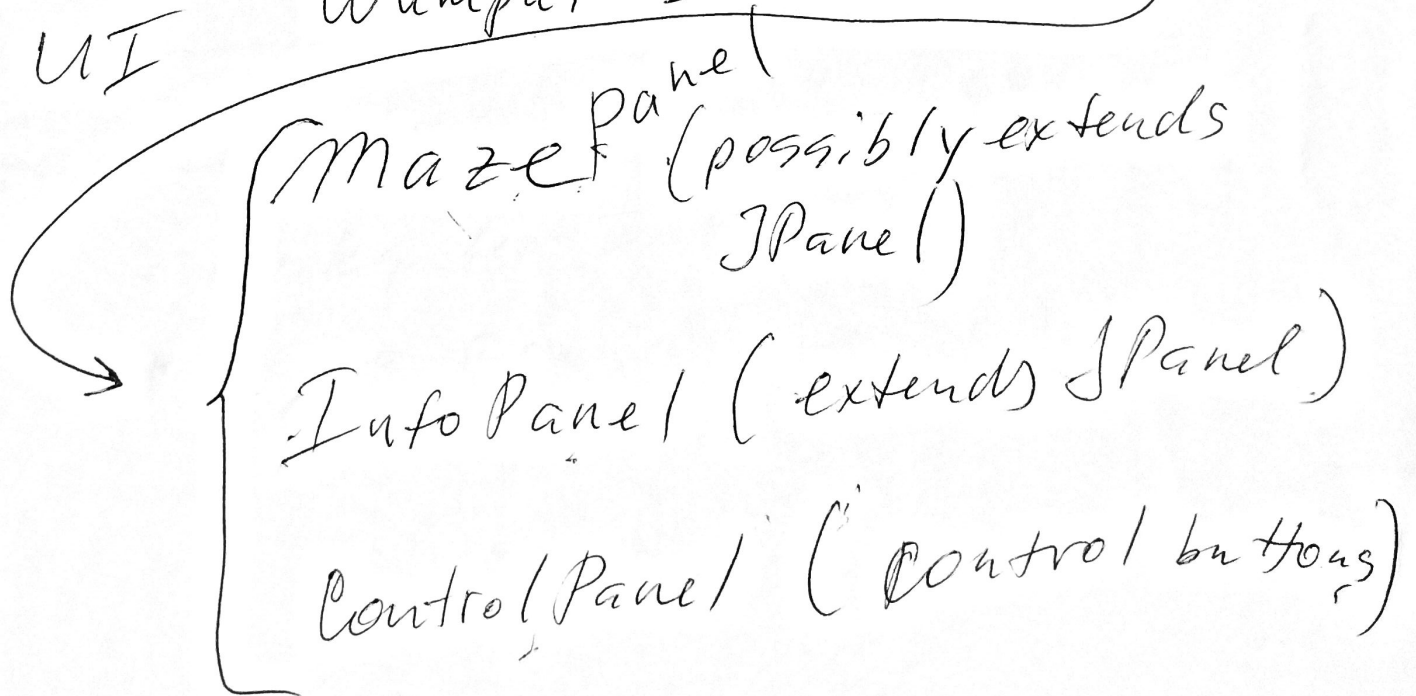 UI
MazePanel (possibly extends
JPanel)
InfoPanel (extends JPanel)
ControlPanel (control buttons)